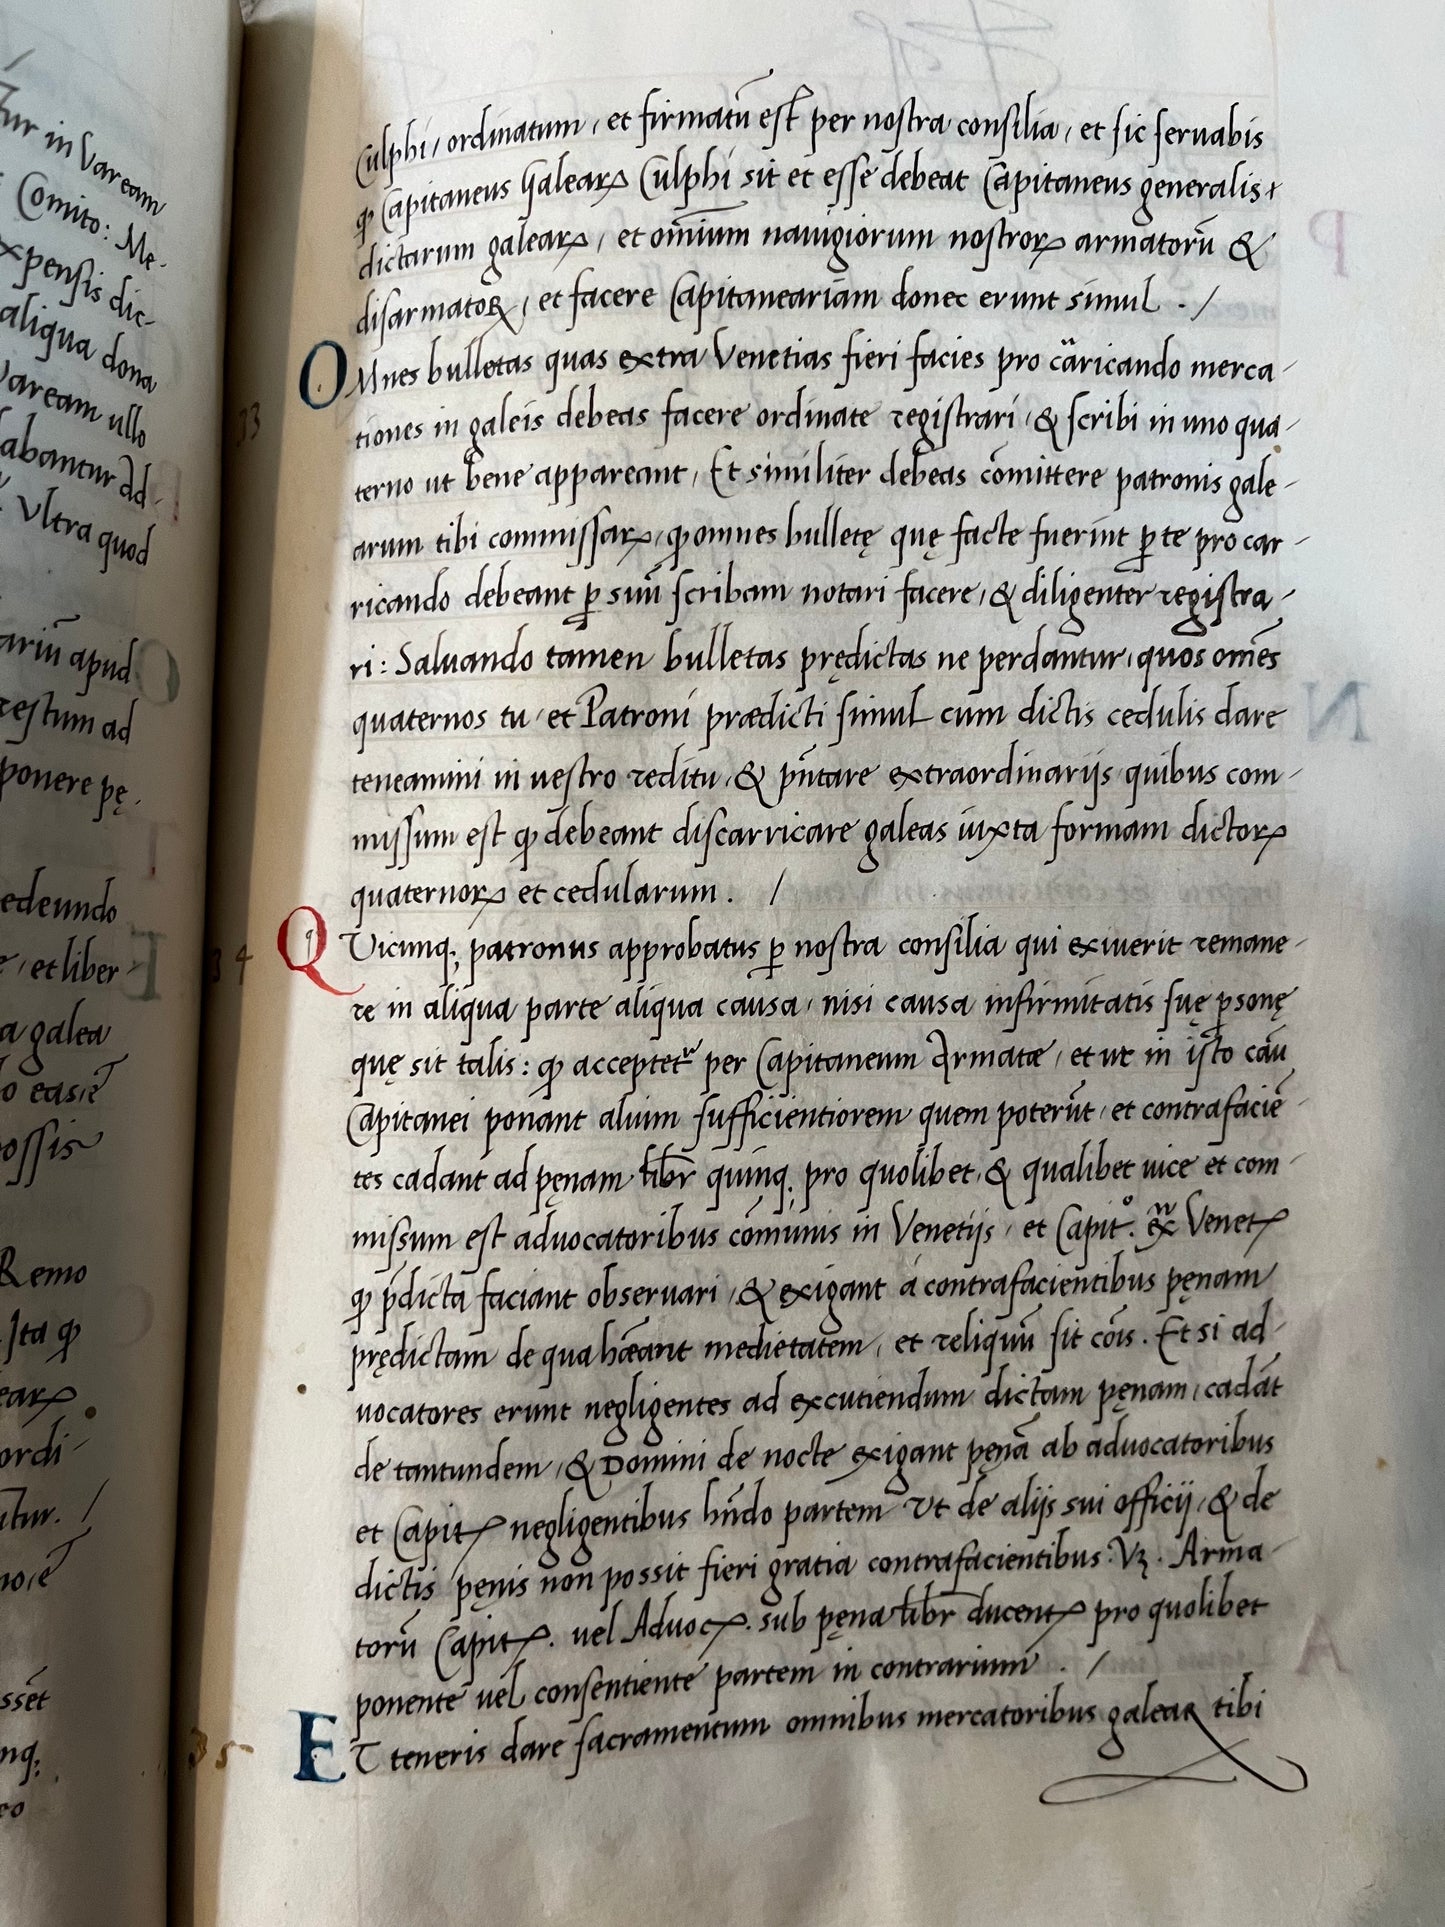 ƶur in Vaream
Comito: Me-
xpensis dic-
aliqua dona
Varеam ullo
labantur Ad-
Vltra quod
ariũ apud
restum ad
ponere pę.
edeundo
, et liber
a galea
o easiē
ossis
Remo
Ita ꝙ
earꝝ
ordi-
ssēt
Culphi, ordinatum, et firmatũ est per nostra consilia, et sic seruabis
ꝙ Capitaneus Galearꝝ Culphi sit et esse debeat Capitaneus generalis
dictarum galearꝝ, et om̄ium nauigiorum nostrorꝝ armatorũ &
disarmatoꝝ, et facere Capitaneariam donec erunt simul . /
33
OMnes bulletas quas extra Venetias fieri facies pro caricando merca-
tiones in galeis debeas facere ordinate registrari, & scribi in uno qua-
terno ut bene appareant, Et similiter debeas cōmittere patronis gale-
arum tibi commissarꝝ, ꝙ omnes bulletę quę facte fuerint ꝑ te pro car-
ricando debeant ꝑ suũ scribam notari facere, & diligenter registra-
ri: Saluando tamen bulletas prędictas ne perdantur, quos om̄es
quaternos tu, et Patroni prædicti simul cum dictis cedulis dare
teneamini in uestro reditu, & p̄ntare extraordinarijs quibus com-
missum est ꝙ debeant discarricare galeas iuxta formam dictorꝝ
quaternorꝝ et cedularum . /
34
QVicunq; patronus approbatus ꝑ nostra consilia qui exiuerit remane-
re in aliqua parte aliqua causa, nisi causa infirmitatis suę ꝑsonę
quę sit talis: ꝙ acceptetʳ per Capitaneum Armatæ, et ut in isto cāu
Capitanei ponant alium sufficientiorem quem poterũt, et contrafaciē-
tes cadant ad pęnam libr̄ quinq; pro quolibet, & qualibet uice et com-
missum est aduocatoribus cōmunis in Venetijs, et Capit°. ex Venetꝝ
ꝙ p̄dicta faciant obseruari, & exigant á contrafacientibus pęnam
prędictam de qua hæant medietatem, et reliquũ sit cōis. Et si ad-
uocatores erunt negligentes ad excutiendum dictam pęnam, cadāt
de tantundem, & Domini de nocte exigant pęnā ab aduocatoribus
et Capitꝝ negligentibus hn̄do partem Vt de alijs sui officij, & de
dictis pęnis non possit fieri gratia contrafacientibus: Vꝫ. Arma-
torũ Capitꝝ. uel Aduocꝝ. sub pęna libr̄ ducentꝝ pro quolibet
ponente uel consentiente partem in contrarium . /
35
ET teneris dare sacramentum omnibus mercatoribus galeaꝝ tibi